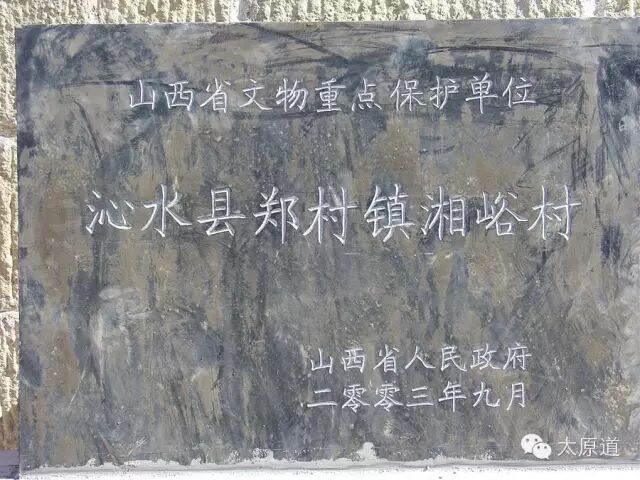 山西省文物重点保护单位
沁水县郑村镇湘峪村
山西省人民政府
二零零三年九月
太原道